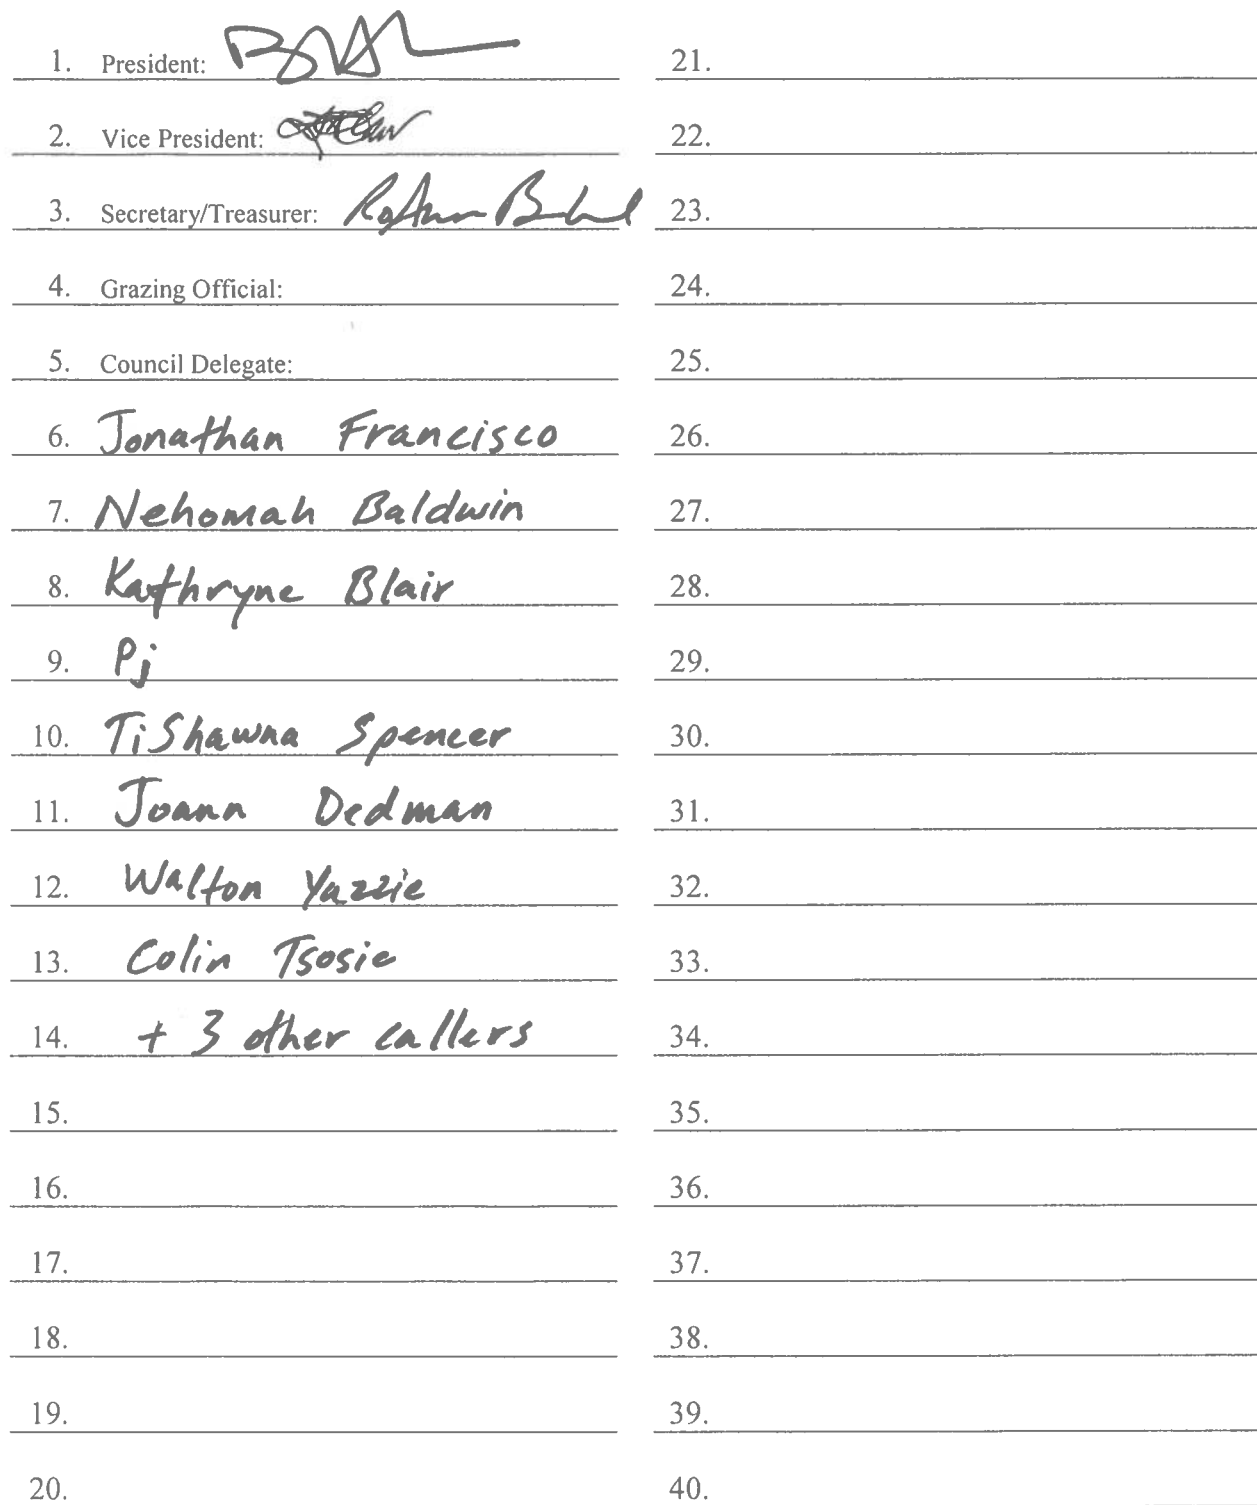 1. President:
2. Vice President:
3. Secretary/Treasurer:
4. Grazing Official:
5. Council Delegate:
6. Jonathan Francisco
7. Nehomah Baldwin
8. Kathryne Blair
9. Pj
10. TiShawna Spencer
11. Joann Dedman
12. Walton Yazzie
13. Colin Tsosie
14. + 3 other callers
15.
16.
17.
18.
19.
20.
21.
22.
23.
24.
25.
26.
27.
28.
29.
30.
31.
32.
33.
34.
35.
36.
37.
38.
39.
40.